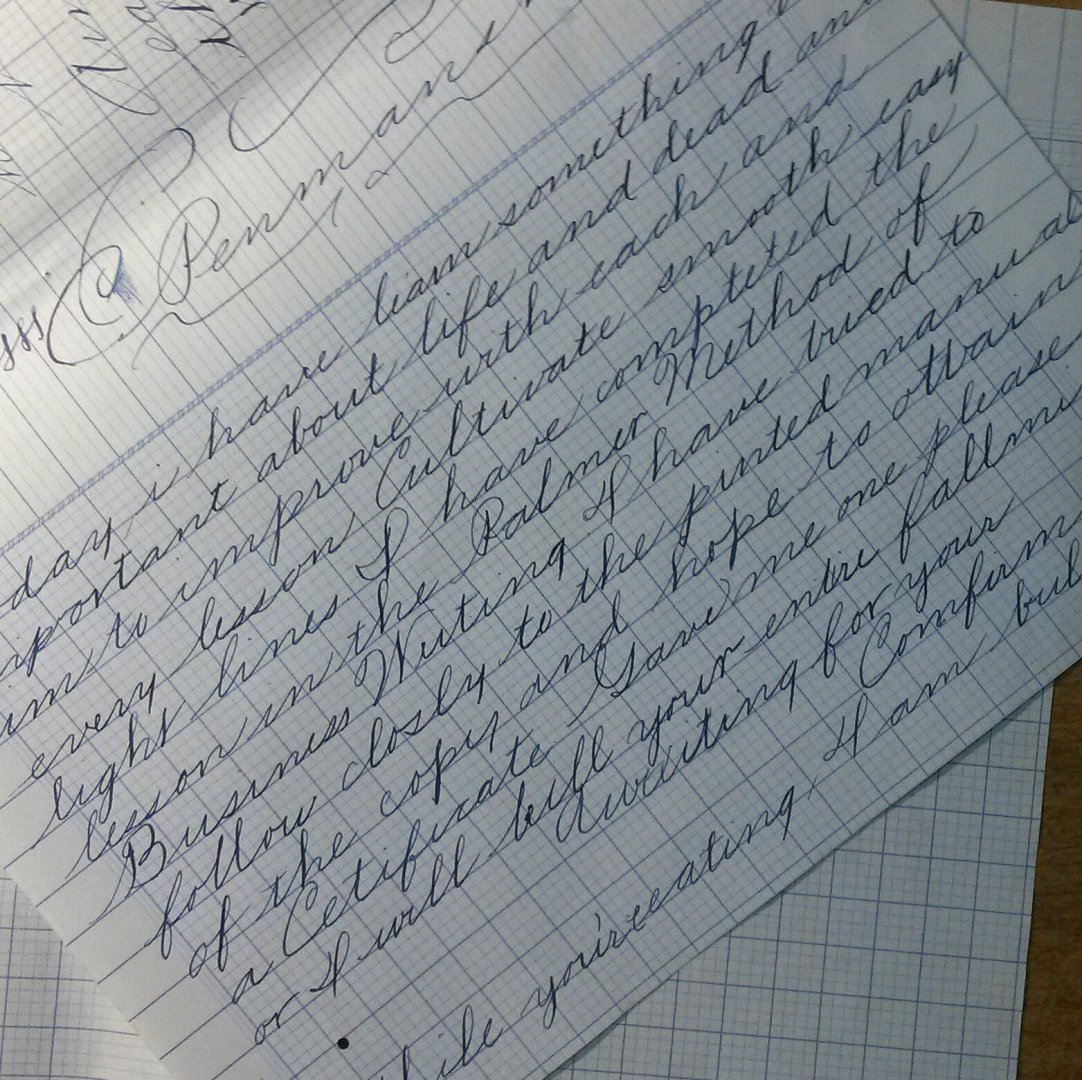 Penmans
day i have liarn something
portant about life and dead and
im to improve with each and
every lesson Cultivate smooth easy
light lines I have completed the
lesson in the Palmer Method of
Business Writing I have tried to
follow closly to the printed manual
of the copy and hope to attain
a Cetificate Gave me one please
or I will kill your entire
Awaiting for your
Confirm
hile you're eating. I am